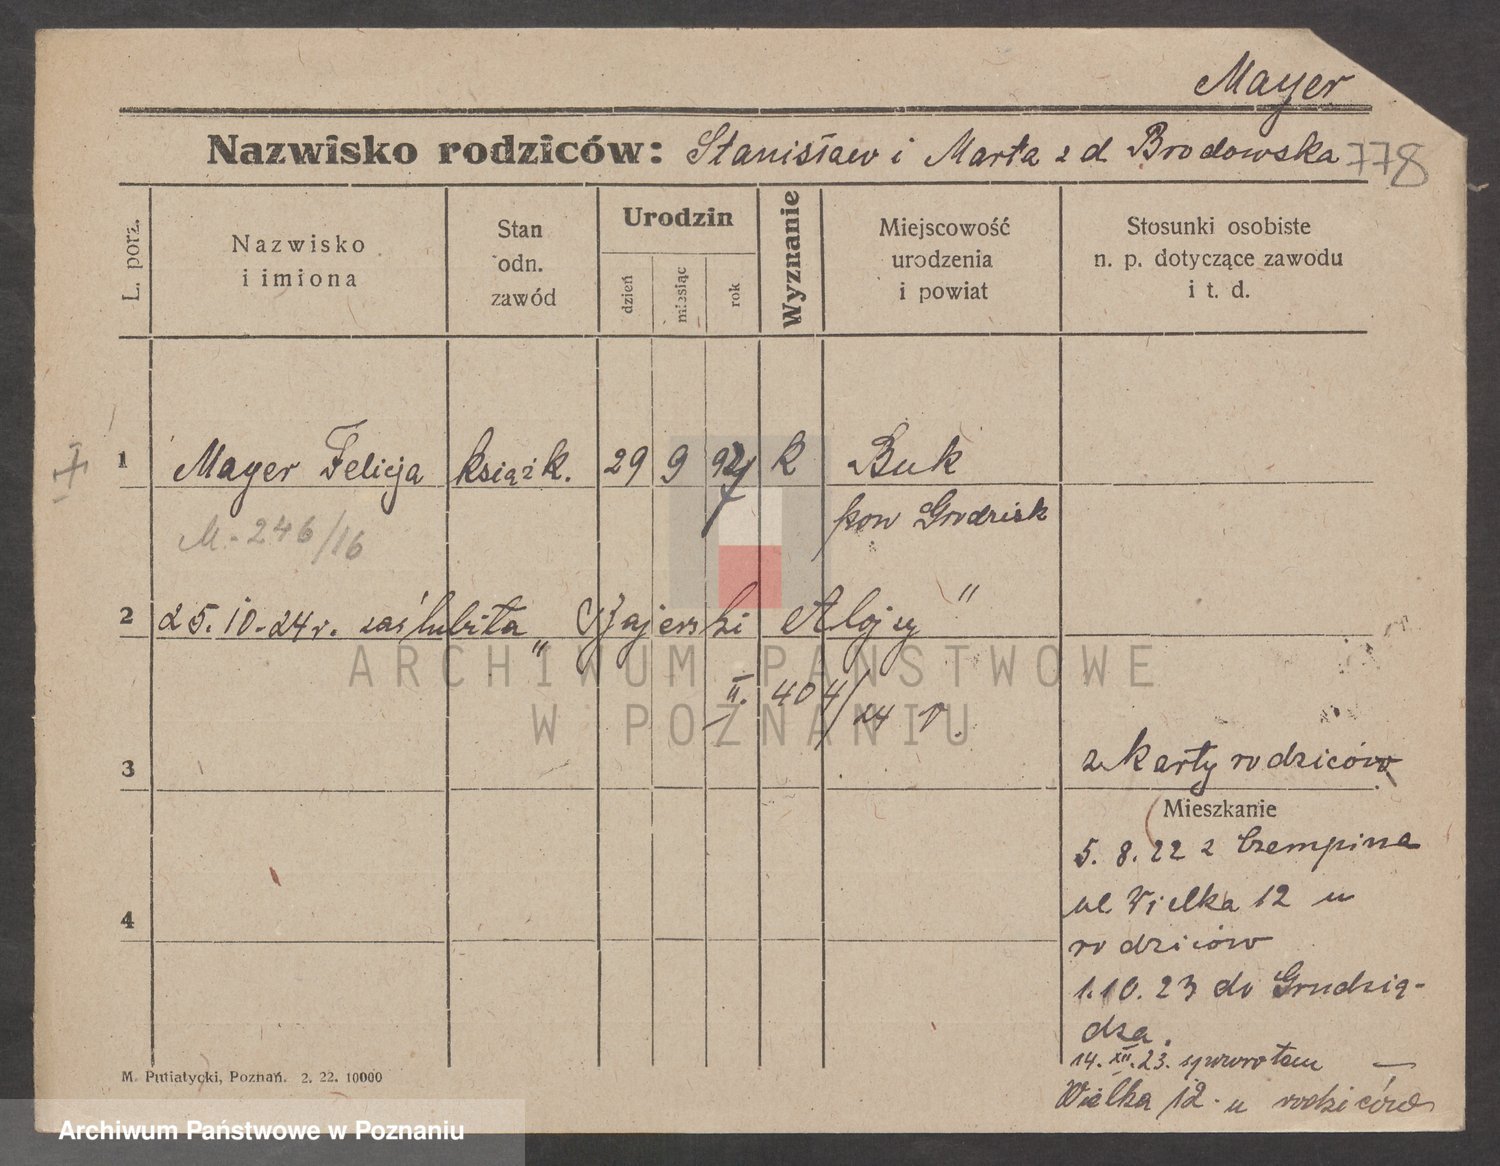 Mayer
Nazwisko rodziców: Stanisław i Marta z d Brodowska 778
L. porz.
Nazwisko i imiona
Stan odn. zawód
Urodzin
dzień
miesiąc
rok
Wyznanie
Miejscowość urodzenia i powiat
Stosunki osobiste n. p. dotyczące zawodu i t. d.
1 Mayer Felicja książk. 29 9 k Buk
pow Grodzisk
M-246/16
2 25.10.24 r. zaślubiła Alojzy "
II. 404/24 r.
3 z karty rodziców
Mieszkanie
5. 8. 22 z Czempina
4 ul Wielka 12 u
rodziców
1.10.23 do Grudzią-
dza.
14. XII. 23. spowrotem
Wielka 12 u rodziców
M. Putiatycki, Poznań. 2. 22. 10000
ARCHIWUM PAŃSTWOWE
W POZNANIU
Archiwum Państwowe w Poznaniu